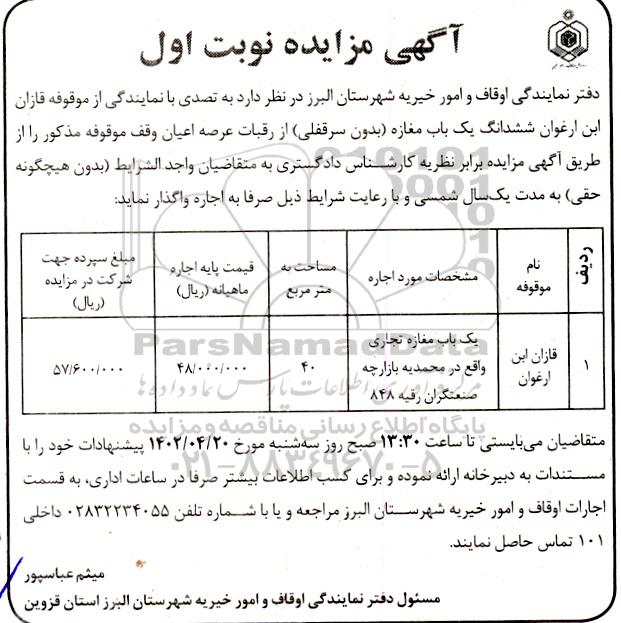 آگهی مزایده نوبت اول
دفتر نمایندگی اوقاف و امور خیریه شهرستان البرز در نظر دارد به تصدی با نمایندگی از موقوفه قازان
ابن ارغوان ششدانگ یک باب مغازه (بدون سرقفلی) از رقبات عرصه اعیان وقف موقوفه مذکور را از
طریق آگهی مزایده برابر نظریه کارشناس دادگستری به متقاضیان واجد الشرایط (بدون هیچگونه
حقی) به مدت یک‌سال شمسی و با رعایت شرایط ذیل صرفا به اجاره واگذار نماید:
ردیف | نام موقوفه | مشخصات مورد اجاره | مساحت به متر مربع | قیمت پایه اجاره ماهیانه (ریال) | مبلغ سپرده جهت شرکت در مزایده (ریال)
۱ | قازان ابن ارغوان | یک باب مغازه تجاری واقع در محمدیه بازارچه صنعتگران رقبه ۸۴۸ | ۴۰ | ۴۸/۰۰۰/۰۰۰ | ۵۷/۶۰۰/۰۰۰
ParsNamadData
پایگاه اطلاع رسانی مناقصه و مزایده
۰۲۱-۸۸۳۴۹۶۷۰-۵
متقاضیان می‌بایستی تا ساعت ۱۳:۳۰ صبح روز سه‌شنبه مورخ ۱۴۰۲/۰۴/۲۰ پیشنهادات خود را با
مستندات به دبیرخانه ارائه نموده و برای کسب اطلاعات بیشتر صرفا در ساعات اداری، به قسمت
اجارات اوقاف و امور خیریه شهرستان البرز مراجعه و یا با شماره تلفن ۰۲۸۳۲۲۳۴۰۵۵ داخلی
۱۰۱ تماس حاصل نمایند.
میثم عباسپور
مسئول دفتر نمایندگی اوقاف و امور خیریه شهرستان البرز استان قزوین